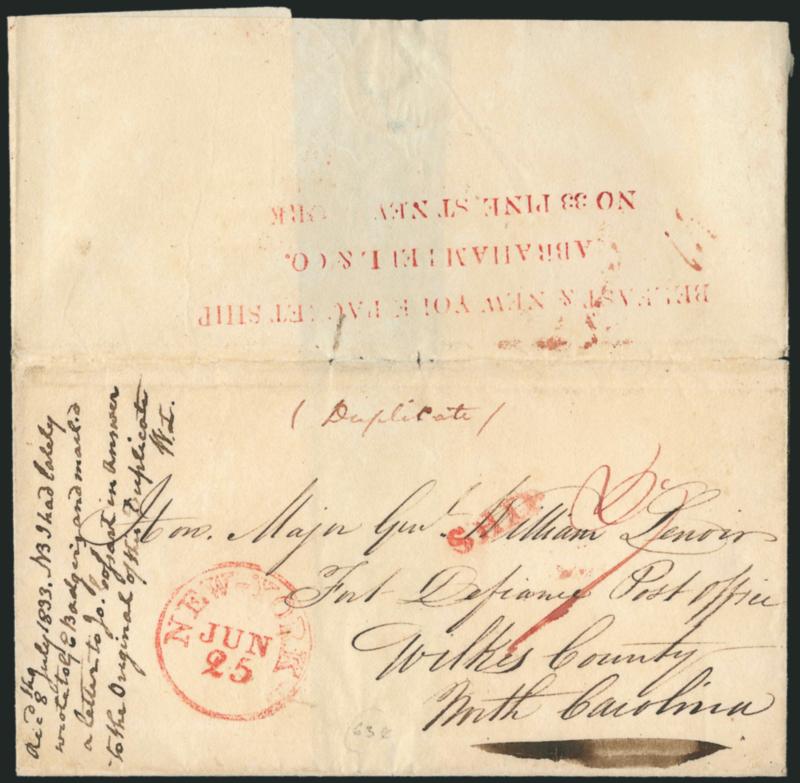 BELFAST & NEW YORK PACKET SHIP
ABRAHAM BELL & CO.
NO 33 PINE ST NEW YORK
(Duplicate)
SHIP
Hon. Major Genl. William Lenoir
Fort Defiance Post Office
Wilkes County
North Carolina
NEW-YORK
JUN
25
Rec'd the
8 July 1833. NB I had lately
wrote to G E Badger and mail'd
a letter to Jo. in answer
to the Original of this Duplicate
W. L.